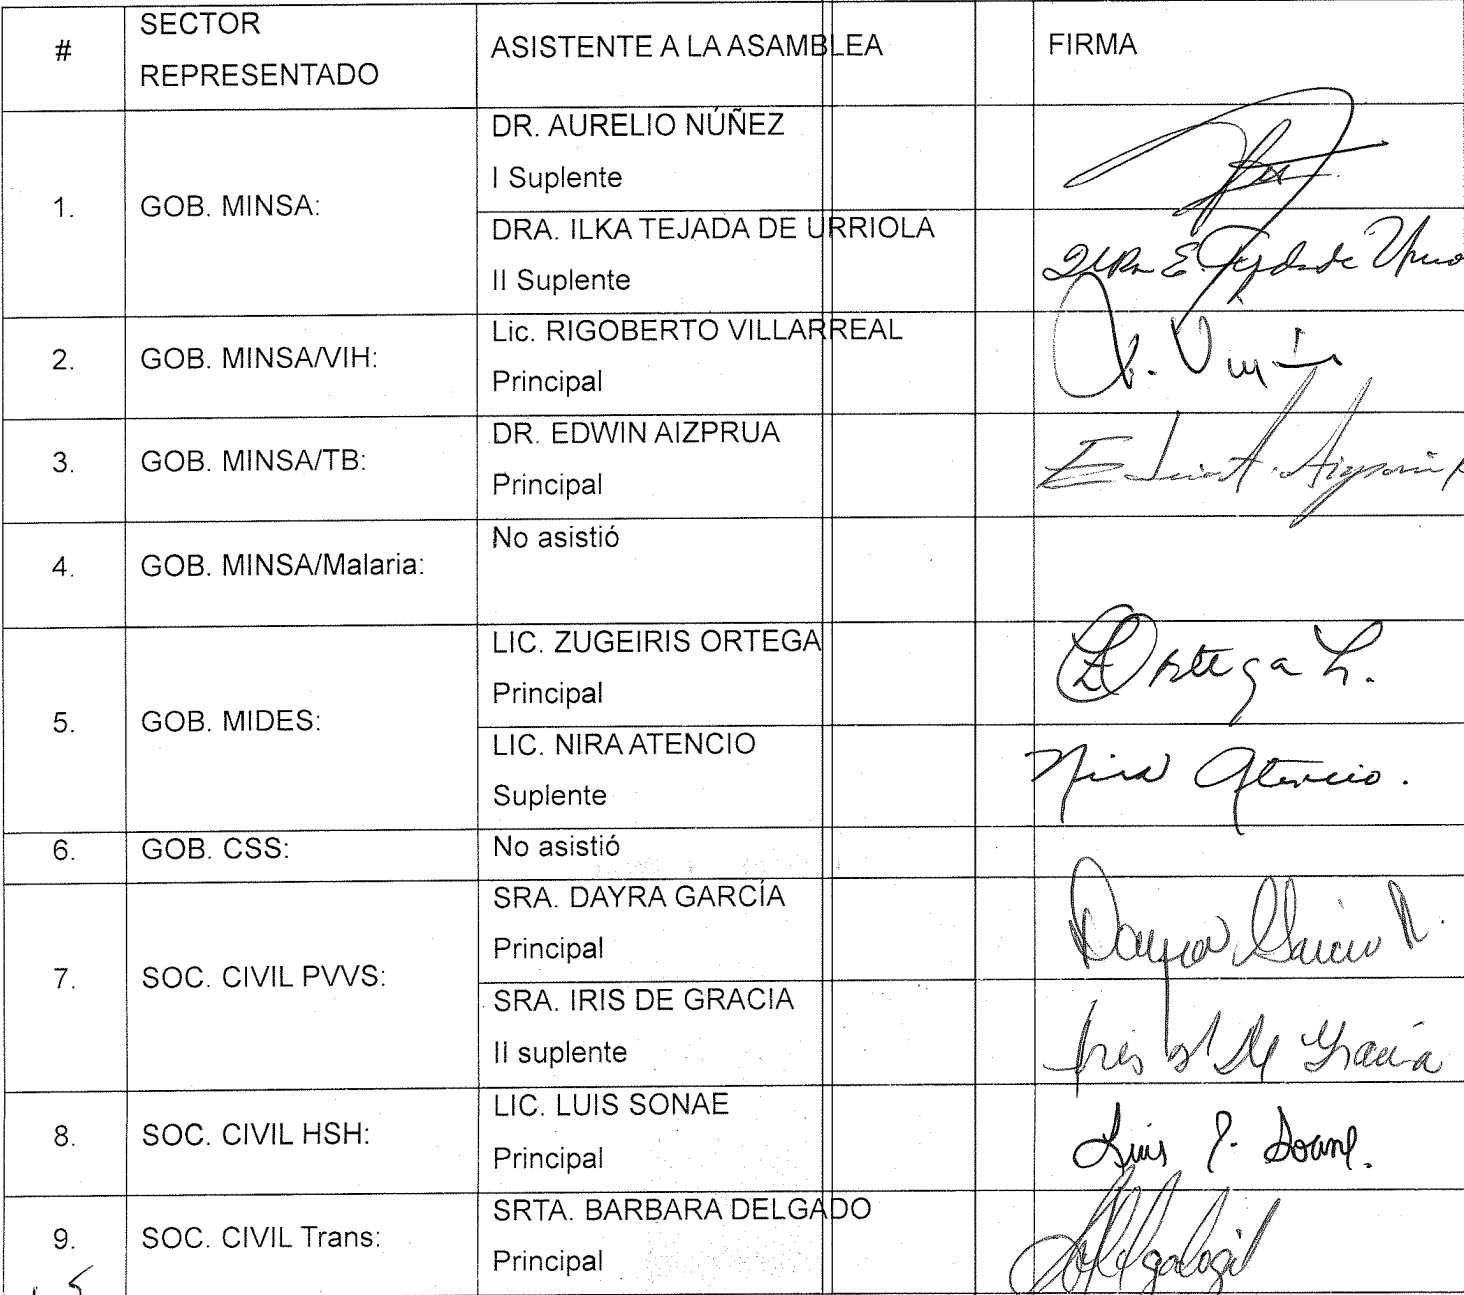 #
SECTOR
REPRESENTADO
ASISTENTE A LA ASAMBLEA
FIRMA
1.
GOB. MINSA:
DR. AURELIO NÚÑEZ
I Suplente
DRA. ILKA TEJADA DE URRIOLA
II Suplente
2.
GOB. MINSA/VIH:
Lic. RIGOBERTO VILLARREAL
Principal
3.
GOB. MINSA/TB:
DR. EDWIN AIZPRUA
Principal
4.
GOB. MINSA/Malaria:
No asistió
5.
GOB. MIDES:
LIC. ZUGEIRIS ORTEGA
Principal
Ortega L.
LIC. NIRA ATENCIO
Suplente
Nira Atencio.
6.
GOB. CSS:
No asistió
7.
SOC. CIVIL PVVS:
SRA. DAYRA GARCÍA
Principal
Dayra García
SRA. IRIS DE GRACIA
II suplente
Iris De Gracia
8.
SOC. CIVIL HSH:
LIC. LUIS SONAE
Principal
Luis
9.
SOC. CIVIL Trans:
SRTA. BARBARA DELGADO
Principal